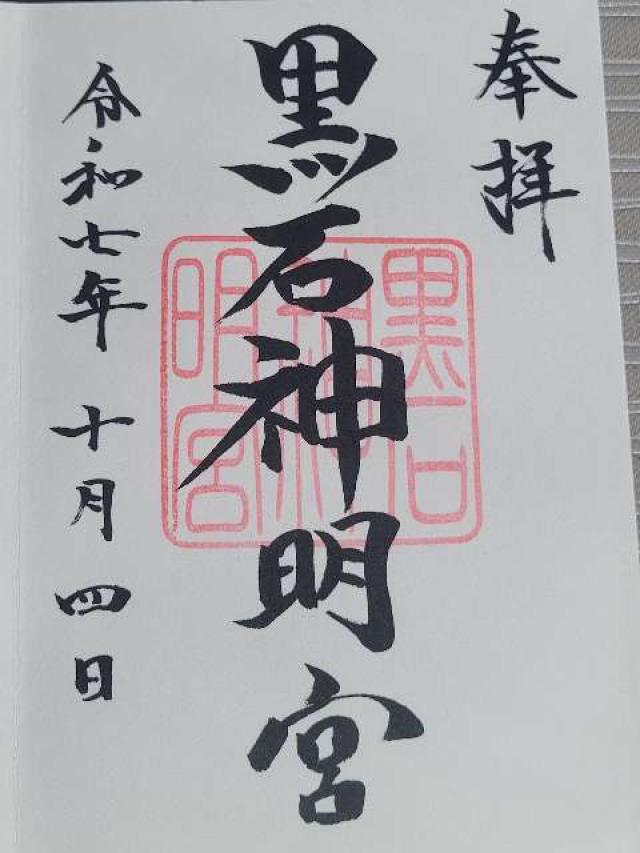 奉拝
黒石神明宮
黒石神明宮
令和七年 十月 四日